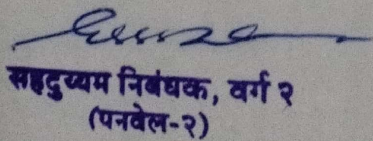 सहदुय्यम निबंधक, वर्ग २
(पनवेल-२)